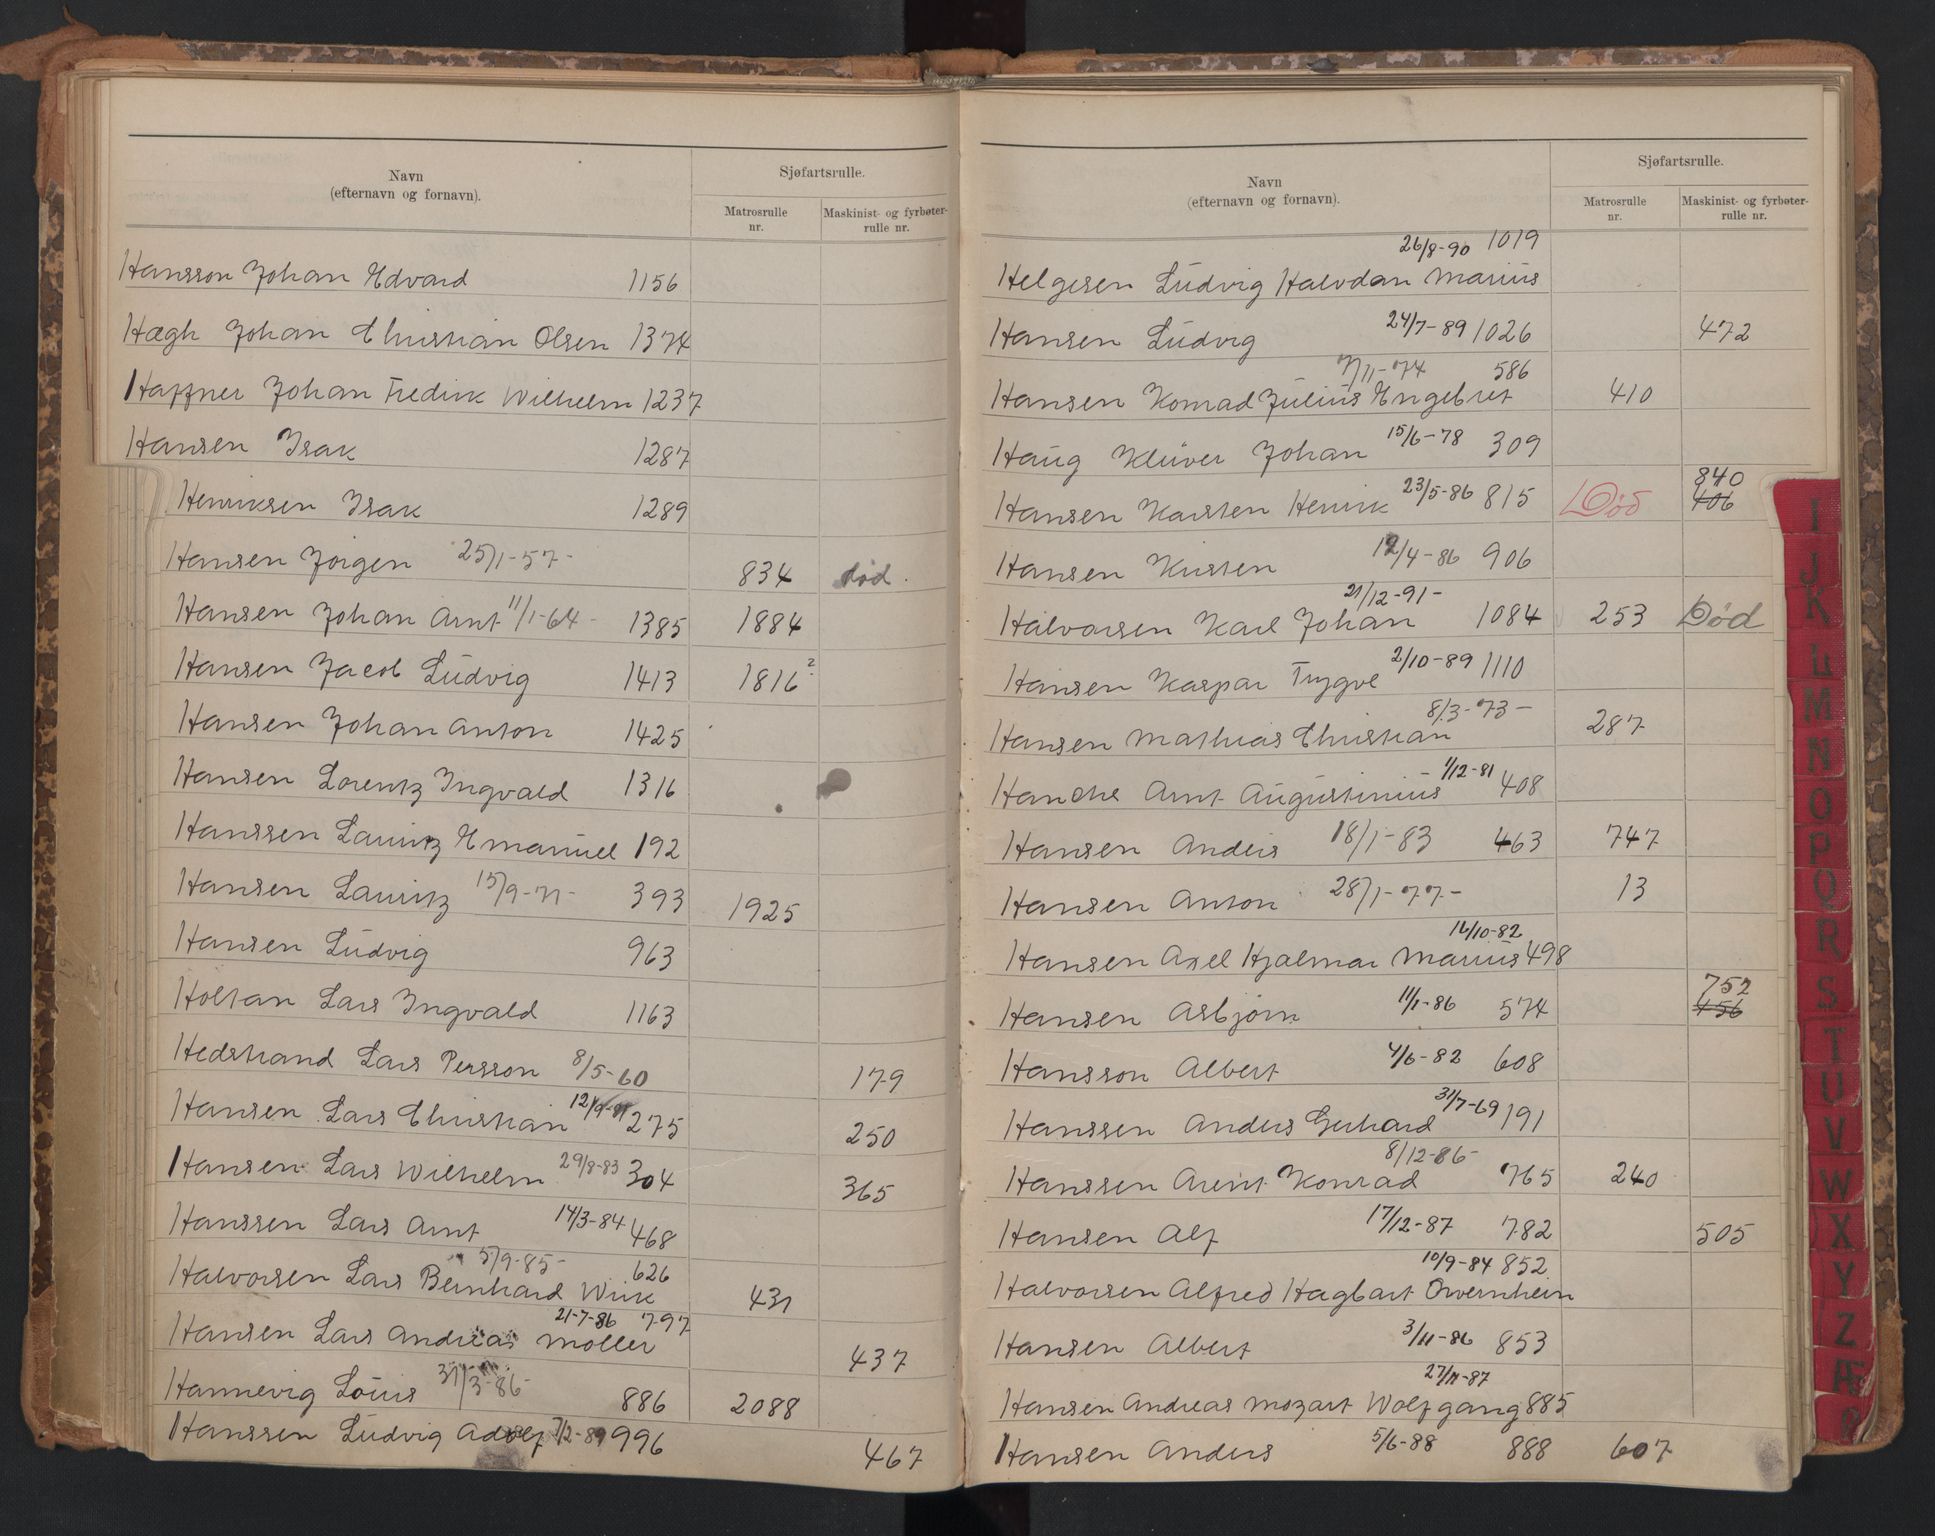 Navn
(efternavn og fornavn).
Sjøfartsrulle.
Matrosrulle nr.
Maskinist- og fyrbøter-rulle nr.
Hansson Johan Edvard 1156
Hægh Johan Christian Olsen 1374
Haffner Johan Fredrik Wilhelm 1237
Hansen Isak 1287
Henriksen Isak 1289
Hansen Jörgen 25/1-57- 834 død.
Hansen Johan Arnt 11/1-64- 1385 1884
Hansen Jacob Ludvig 1413 1816 2
Hansen Johan Anton 1425
Hansen Lorentz Ingvald 1316
Hanssen Lauritz Emanuel 192
Hansen Lauritz 15/9-71- 393 1925
Hansen Ludvig 963
Holtan Lars Ingvald 1163
Hedstrand Lars Persson 8/5-60 179
Hansen Lars Christian 12/9- 275 250
Hansen Lars Wilhelm 29/8-83 304 365
Hanssen Lars Arnt 14/3-84 468
5/9-85- 626
Halvorsen Lars Bernhard Wiik 431
21-7-86 797
Hansen Lars Andreas Møller 437
Hannevig Louis 31/3-86- 886 2088
Hanssen Ludvig Adolf 7/2-89 996 467
Navn
(efternavn og fornavn).
Sjøfartsrulle.
Matrosrulle nr.
Maskinist- og fyrbøter-rulle nr.
26/8-90 1019
Helgesen Ludvig Halvdan Marius
Hansen Ludvig 24/7-89 1026 472
7/11-74 586
Hansen Konrad Julius Engebret 410
Haug Klüver Johan 15/6-78 309
840
Hansen Karsten Henrik 23/5-86 815 Død 406
Hansen Kristen 12/4-86 906
21/12-91-
Halvorsen Karl Johan 1084 253 Død
Hansen Kaspar Trygve 2/10-89 1110
8/3-73-
Hansen Mathias Christian 287
1/12-81
Hanche Arnt Augustinius 408
Hansen Anders 18/1-83 463 747
Hansen Anton 28/1-77- 13
16/10-82
Hansen Axel Hjalmar Marius 498
752
Hansen Asbjørn 11/1-86 574 456
Hansson Albert 4/6-82 608
31/7-69
Hanssen Anders Gerhard 191
8/12-86-
Hanssen Arent Konrad 765 240
Hansen Alf 17/12-87 782 505
10/9-84 852
Halvorsen Alfred Hagbart Overnhein
Hansen Albert 3/11-86 853
27/11-87
Hansen Andreas Mozart Wolfgang 885
Hansen Anders 5/6-88 888 607
I
J
K
L
M
N
O
P
Q
R
S
T
U
V
W
X
Y
Z
Æ
Ø